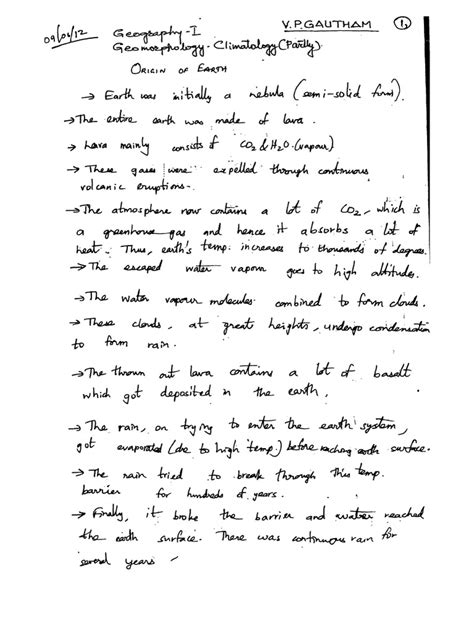 09/06/12 Geography-I V.P.GAUTHAM 1,
Geomorphology-Climatology (Partly)
ORIGIN OF EARTH
→ Earth was initially a nebula (semi-solid form).
→ The entire earth was made of lava.
→ Lava mainly consists of CO2 & H2O (vapour)
→ These gases were expelled through continuous
volcanic eruptions.
→ The atmosphere now contains a lot of CO2, which is
a greenhouse gas and hence it absorbs a lot of
heat. Thus, earth's temp. increases to thousands of degrees.
→ The escaped water vapour goes to high altitudes.
→ The water vapour molecules combined to form clouds.
→ These clouds, at great heights, undergo condensation
to form rain.
→ The thrown out lava contains a lot of basalt
which got deposited in the earth.
→ The rain, on trying to enter the earth system,
got evaporated (due to high temp.) before reaching earth surface.
→ The rain tried to break through this temp.
barrier for hundreds of years.
→ Finally, it broke the barrier and water reached
the earth surface. There was continuous rain for
several years